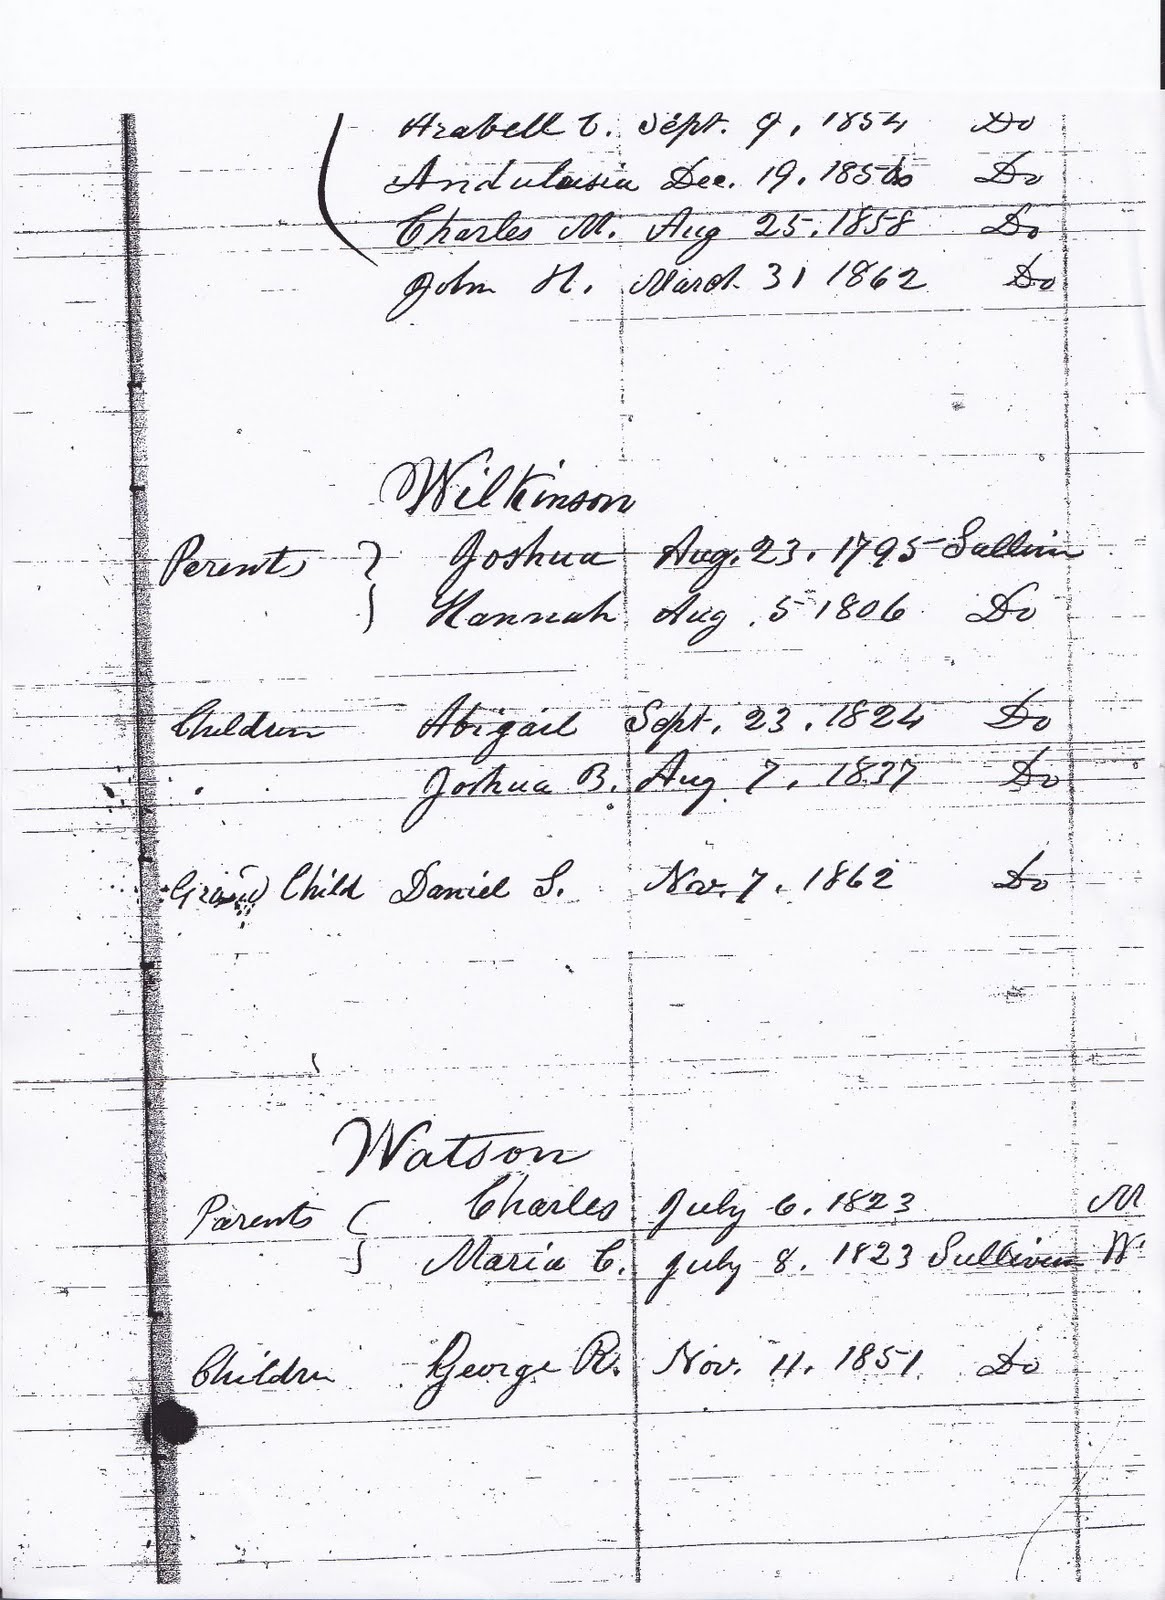 Arabell C. Sept. 9, 1854 Do
Andulusia Dec. 19, 1856 Do
Charles M. Aug 25, 1858 Do
John H. March 31 1862 Do
Wilkinson
Perents Joshua Aug. 23, 1795 Sullivan
Hannah Aug. 5 1806 Do
Children Abigail Sept. 23, 1824 Do
Joshua B. Aug 7, 1837 Do
Grand Child Daniel S. Nov. 7, 1862 Do
Watson
Parents Charles July 6, 1823 M
Maria C. July 8, 1823 Sullivan W
Children George R. Nov. 11, 1851 Do